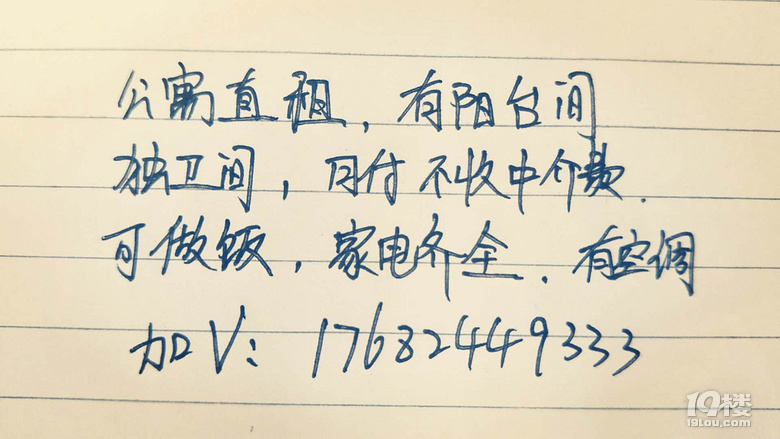 公寓直租，有阳台间
独卫间，月付不收中介费.
可做饭，家电齐全.有空调
加V：17682449333
19楼
19lou.com